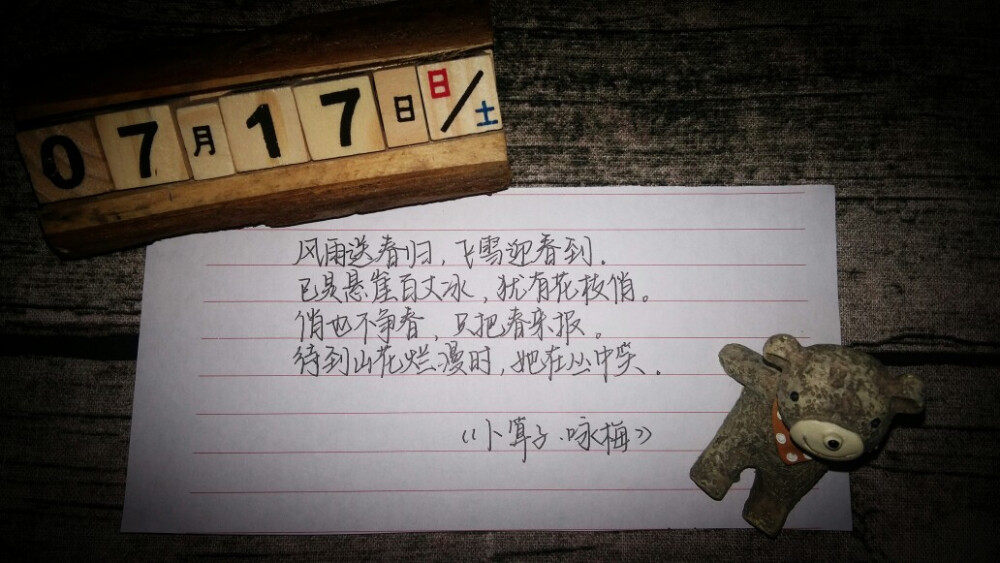 07月17日 日/土
风雨送春归，飞雪迎春到。
已是悬崖百丈冰，犹有花枝俏。
俏也不争春，只把春来报。
待到山花烂漫时，她在丛中笑。
《卜算子·咏梅》